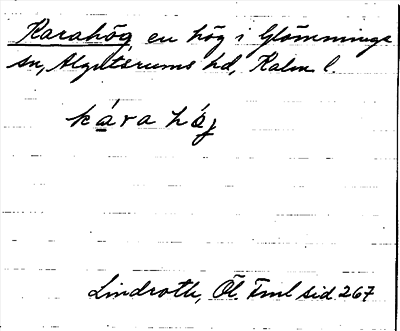 Karahög en hög i Glömminge
sn, Algutsrums hd, Kalm l.
kára hö́g
Lindroth, Öl Fml sid 267